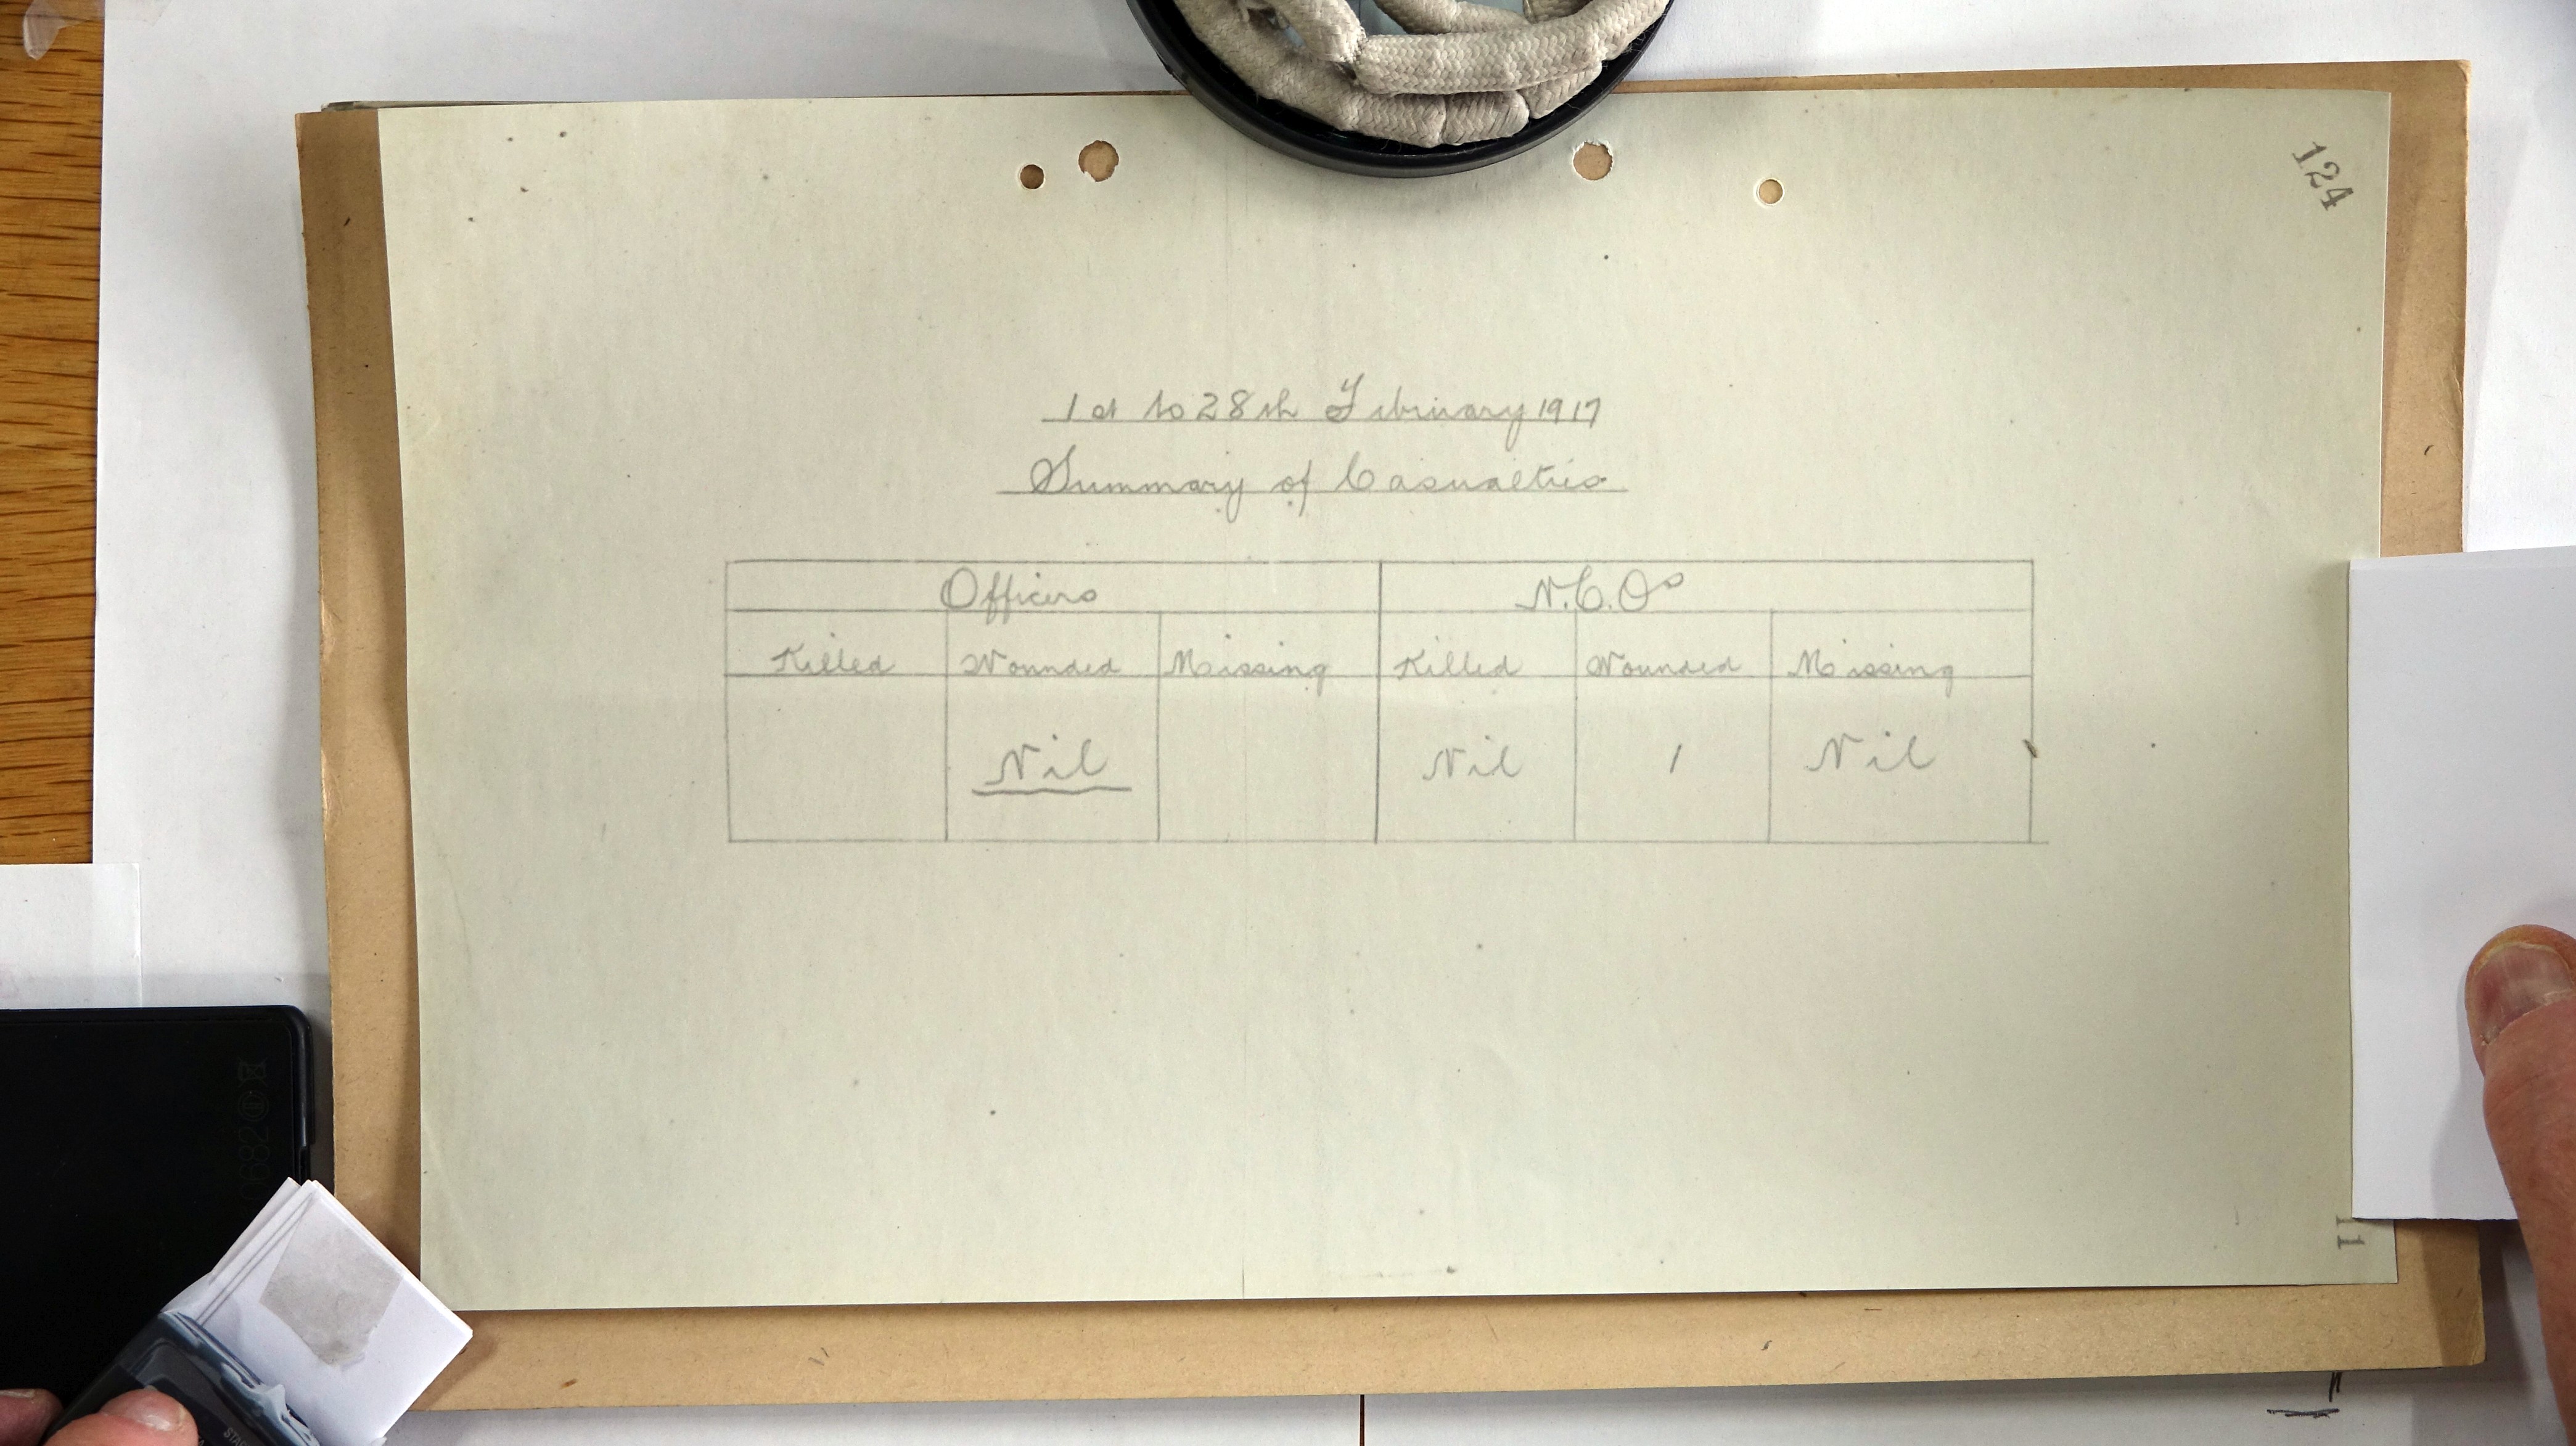 124
1st to 28th February 1917
Summary of Casualties
Officers N.C.Os
Killed Wounded Missing Killed Wounded Missing
Nil Nil 1 Nil
11